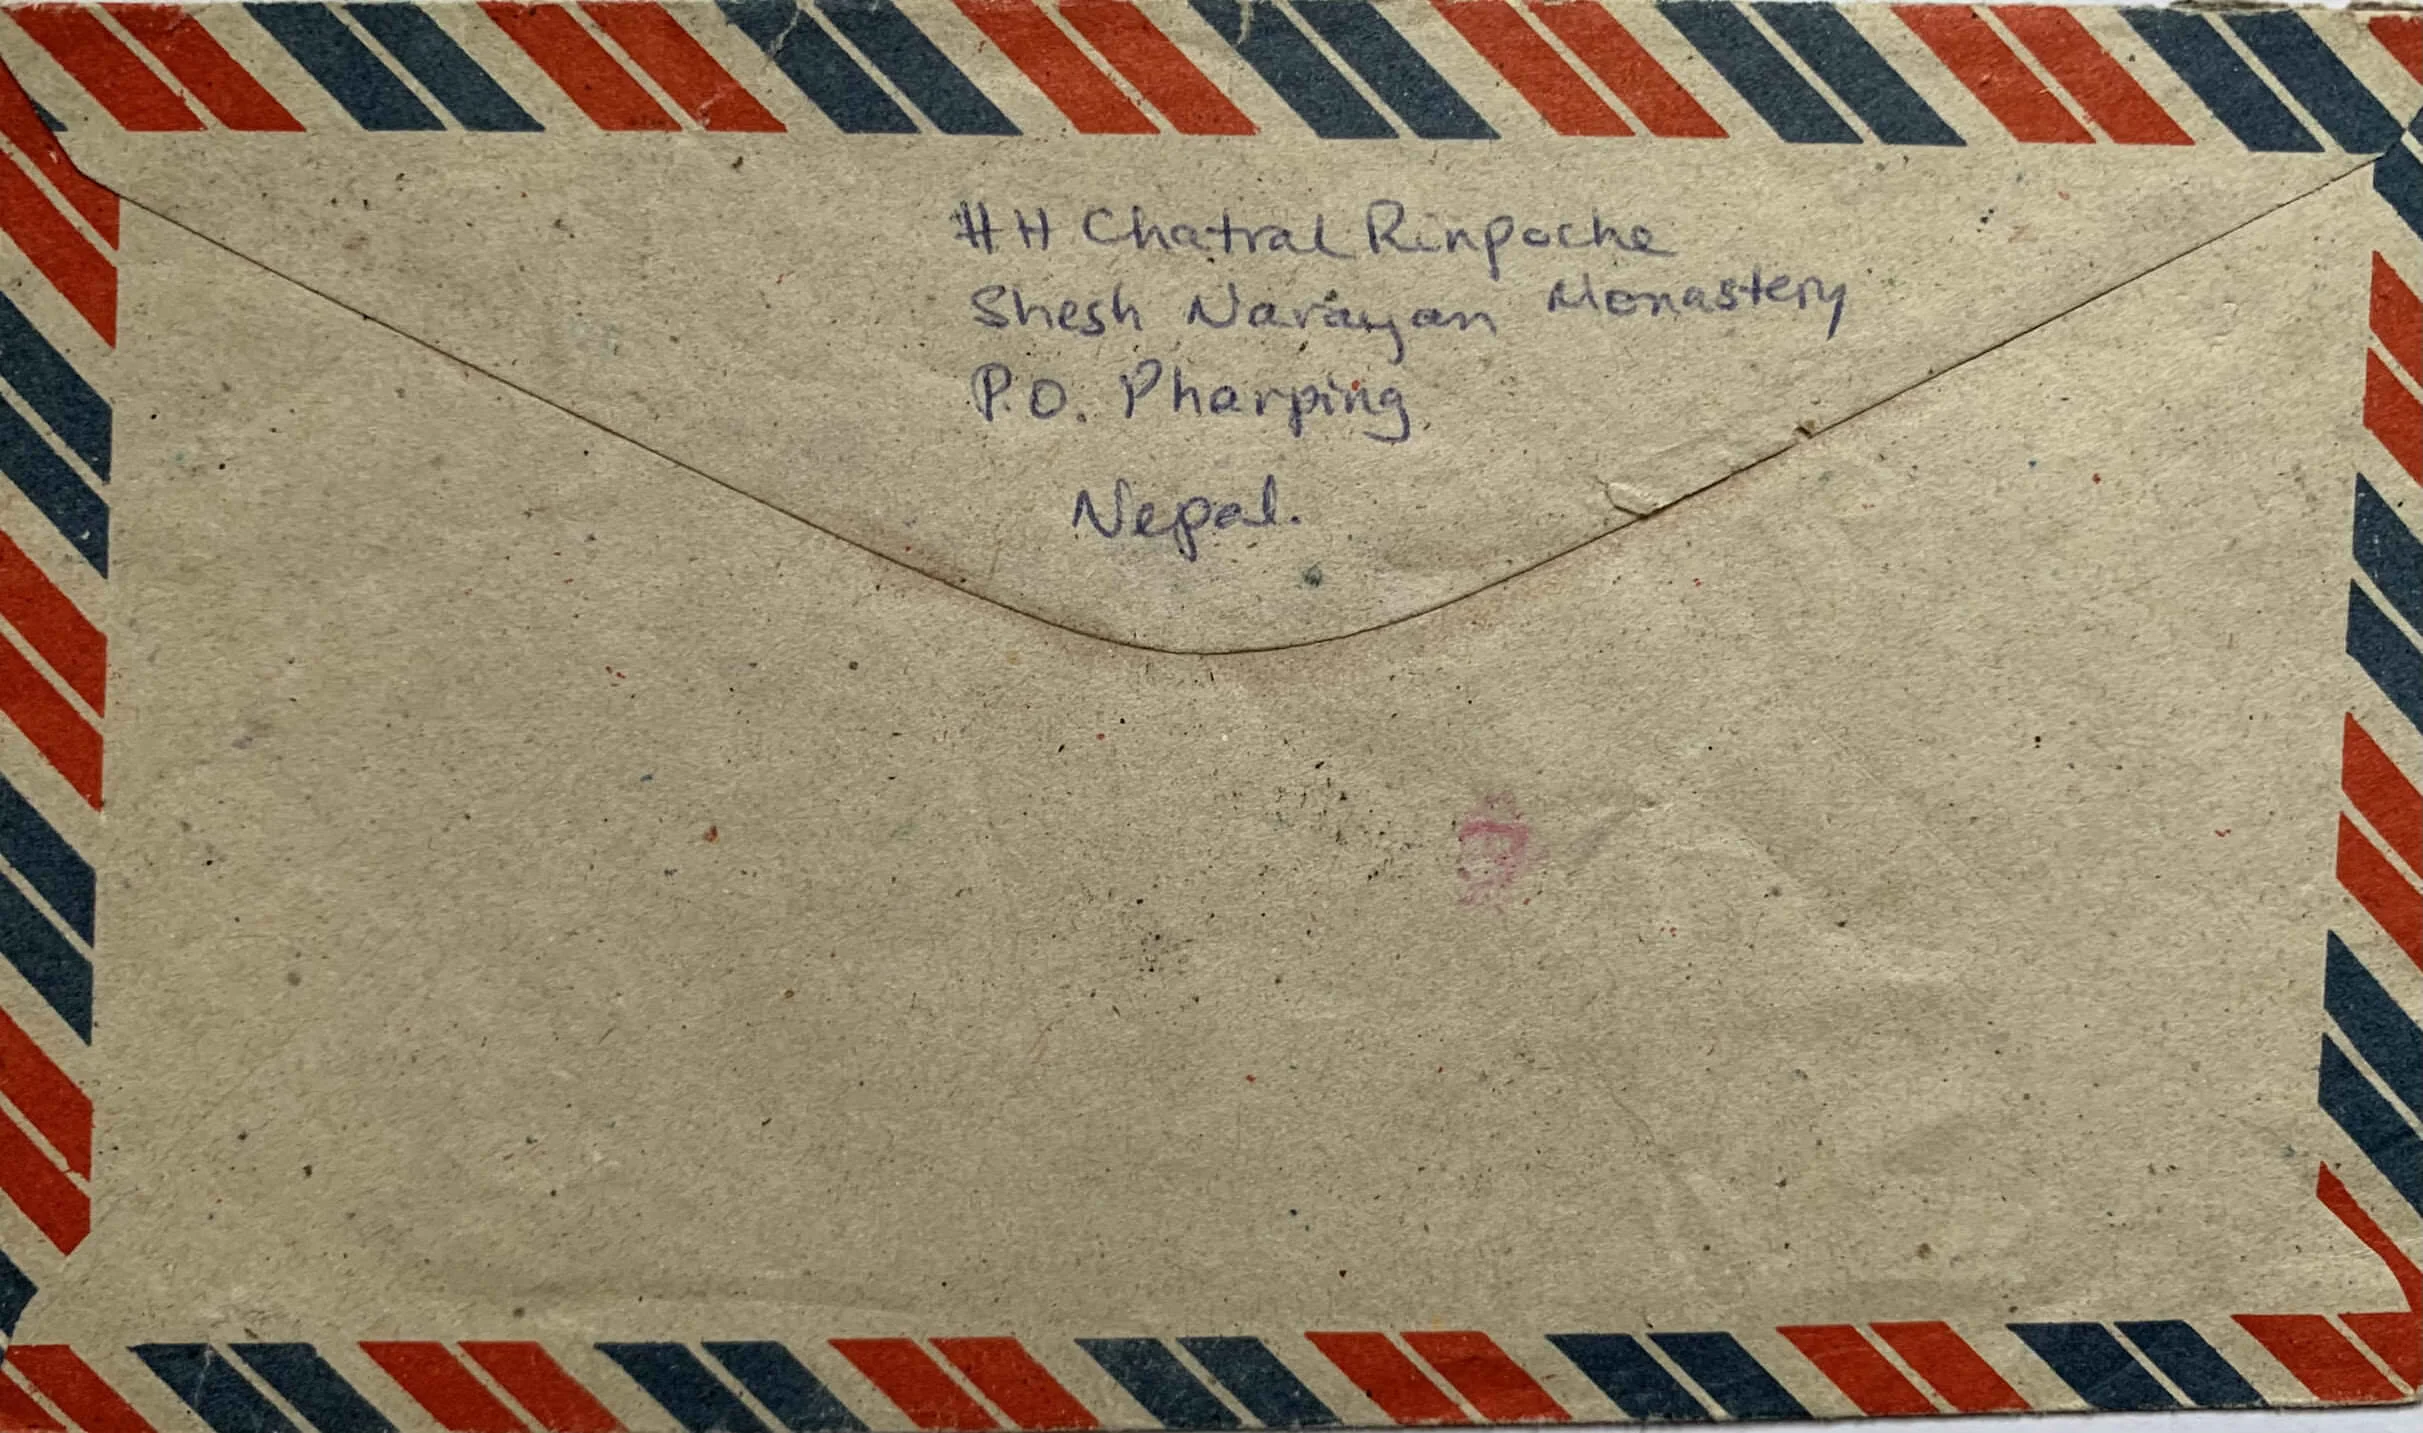 HH Chatral Rinpoche
Shesh Narayan Monastery
P.O. Pharping
Nepal.